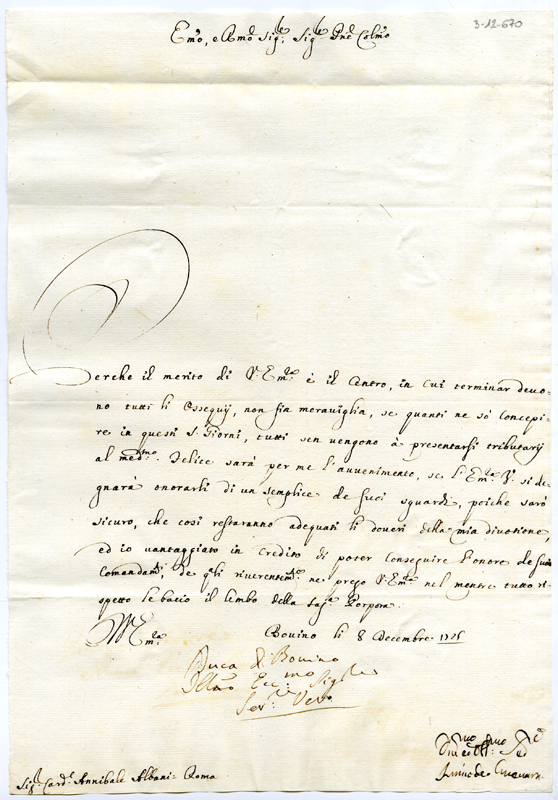 3-12-670
Emo, e Rmo Sigre, Sigre Pne Colmo
Perche il merito di V. Emza è il Centro, in cui terminar deuo-
no tutti li Ossequij, non fia meraviglia, se quanti ne sò Concepi-
re in questi S. Giorni, tutti sen vengono à presentarsi tributarij
al medmo. Felice sarà per me l'auuenimento, se l'Emza V. si de-
gnarà onorarli di un semplice de suoi sguardi, poiche sarò
sicuro, che così restaranno adequati li doveri della mia divotione,
ed io vantaggiato in Credito di poter Conseguire l'onore de suoi
Comandamti, de qli riverentemte ne prego V. Emza nel mentre tutto ri-
spetto le bacio il lembo della Saga Porpora.
Bovino li 8 Decembre
Duca di Bovino
Sigre
Sigr Cardl Annibale Albani = Roma